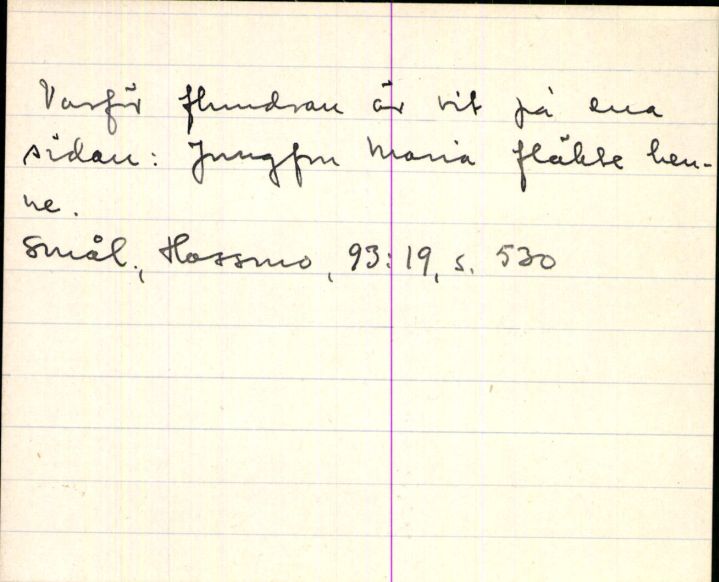 Varför flundran är vit på ena
sidan: Jungfru Maria fläkte hen-
ne.
Smål., Hossmo, 93:19, s. 530